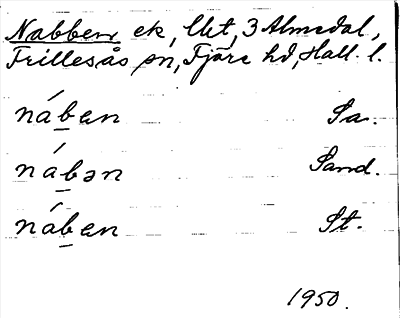 Nabben ek, Ubt, 3 Almedal,
Frillesås sn, Fjäre hd, Hall. l.
náben Sa.
nábən Sand.
náben St.
1950.